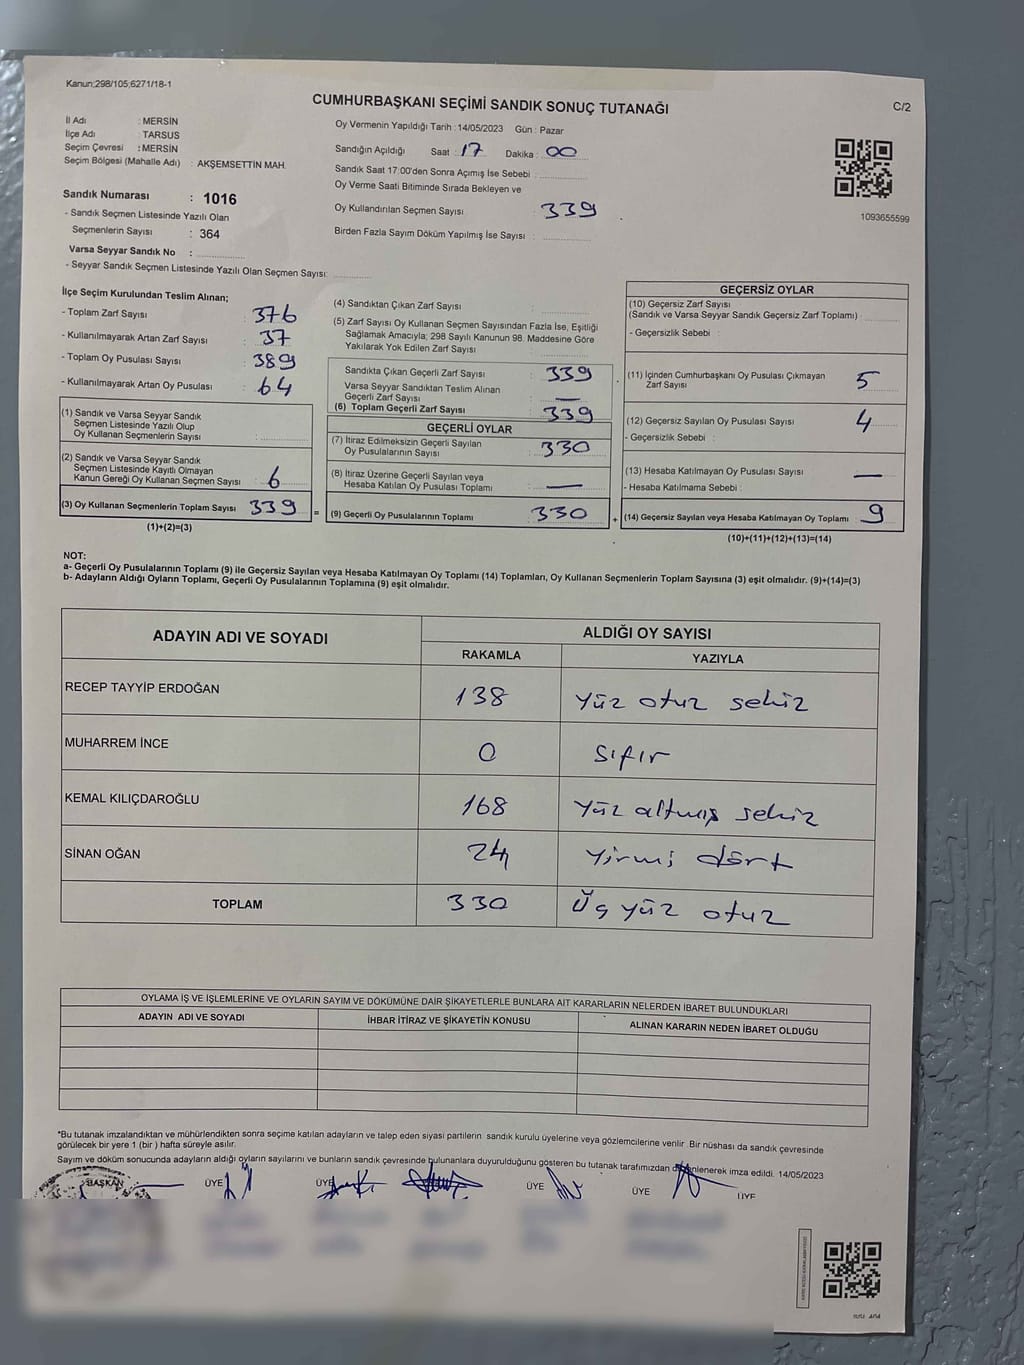 Kanun;298/105;6271/18-1
CUMHURBAŞKANI SEÇİMİ SANDIK SONUÇ TUTANAĞI
C/2
İl Adı : MERSİN
İlçe Adı : TARSUS
Seçim Çevresi : MERSİN
Seçim Bölgesi (Mahalle Adı) : AKŞEMSETTİN MAH.
Sandık Numarası : 1016
- Sandık Seçmen Listesinde Yazılı Olan
Seçmenlerin Sayısı : 364
Varsa Seyyar Sandık No :
- Seyyar Sandık Seçmen Listesinde Yazılı Olan Seçmen Sayısı:
Oy Vermenin Yapıldığı Tarih : 14/05/2023 Gün : Pazar
Sandığın Açıldığı Saat : 17 Dakika : 00
Sandık Saat 17:00'den Sonra Açımış İse Sebebi :
Oy Verme Saati Bitiminde Sırada Bekleyen ve
Oy Kullandırılan Seçmen Sayısı : 339
Birden Fazla Sayım Döküm Yapılmış İse Sayısı :
1093655599
İlçe Seçim Kurulundan Teslim Alınan;
- Toplam Zarf Sayısı : 376
- Kullanılmayarak Artan Zarf Sayısı : 37
- Toplam Oy Pusulası Sayısı : 389
- Kullanılmayarak Artan Oy Pusulası : 64
(1) Sandık ve Varsa Seyyar Sandık
Seçmen Listesinde Yazılı Olup
Oy Kullanan Seçmenlerin Sayısı :
(2) Sandık ve Varsa Seyyar Sandık
Seçmen Listesinde Kayıtlı Olmayan
Kanun Gereği Oy Kullanan Seçmen Sayısı : 6
(3) Oy Kullanan Seçmenlerin Toplam Sayısı 339
(1)+(2)=(3)
(4) Sandıktan Çıkan Zarf Sayısı :
(5) Zarf Sayısı Oy Kullanan Seçmen Sayısından Fazla İse, Eşitliği
Sağlamak Amacıyla; 298 Sayılı Kanunun 98. Maddesine Göre
Yakılarak Yok Edilen Zarf Sayısı :
Sandıkta Çıkan Geçerli Zarf Sayısı : 339
Varsa Seyyar Sandıktan Teslim Alınan
Geçerli Zarf Sayısı : —
(6) Toplam Geçerli Zarf Sayısı : 339
GEÇERLİ OYLAR
(7) İtiraz Edilmeksizin Geçerli Sayılan
Oy Pusulalarının Sayısı : 330
(8) İtiraz Üzerine Geçerli Sayılan veya
Hesaba Katılan Oy Pusulası Toplamı : —
= (9) Geçerli Oy Pusulalarının Toplamı : 330
GEÇERSİZ OYLAR
(10) Geçersiz Zarf Sayısı
(Sandık ve Varsa Seyyar Sandık Geçersiz Zarf Toplamı) :
- Geçersizlik Sebebi :
(11) İçinden Cumhurbaşkanı Oy Pusulası Çıkmayan
Zarf Sayısı : 5
(12) Geçersiz Sayılan Oy Pusulası Sayısı : 4
- Geçersizlik Sebebi :
(13) Hesaba Katılmayan Oy Pusulası Sayısı : —
- Hesaba Katılmama Sebebi :
+ (14) Geçersiz Sayılan veya Hesaba Katılmayan Oy Toplamı : 9
(10)+(11)+(12)+(13)=(14)
NOT:
a- Geçerli Oy Pusulalarının Toplamı (9) ile Geçersiz Sayılan veya Hesaba Katılmayan Oy Toplamı (14) Toplamları, Oy Kullanan Seçmenlerin Toplam Sayısına (3) eşit olmalıdır. (9)+(14)=(3)
b- Adayların Aldığı Oyların Toplamı, Geçerli Oy Pusulalarının Toplamına (9) eşit olmalıdır.
ADAYIN ADI VE SOYADI
ALDIĞI OY SAYISI
RAKAMLA YAZIYLA
RECEP TAYYİP ERDOĞAN 138 Yüz otuz sekiz
MUHARREM İNCE 0 Sıfır
KEMAL KILIÇDAROĞLU 168 Yüz altmış sekiz
SİNAN OĞAN 24 Yirmi dört
TOPLAM 330 Üç yüz otuz
OYLAMA İŞ VE İŞLEMLERİNE VE OYLARIN SAYIM VE DÖKÜMÜNE DAİR ŞİKAYETLERLE BUNLARA AİT KARARLARIN NELERDEN İBARET BULUNDUKLARI
ADAYIN ADI VE SOYADI İHBAR İTİRAZ VE ŞİKAYETİN KONUSU ALINAN KARARIN NEDEN İBARET OLDUĞU
*Bu tutanak imzalandıktan ve mühürlendikten sonra seçime katılan adayların ve talep eden siyasi partilerin sandık kurulu üyelerine veya gözlemcilerine verilir. Bir nüshası da sandık çevresinde
görülecek bir yere 1 (bir) hafta süreyle asılır.
Sayım ve döküm sonucunda adayların aldığı oyların sayılarını ve bunların sandık çevresinde bulunanlara duyurulduğunu gösteren bu tutanak tarafımızdan düzenlenerek imza edildi. 14/05/2023
BAŞKAN ÜYE ÜYE ÜYE ÜYE ÜYE